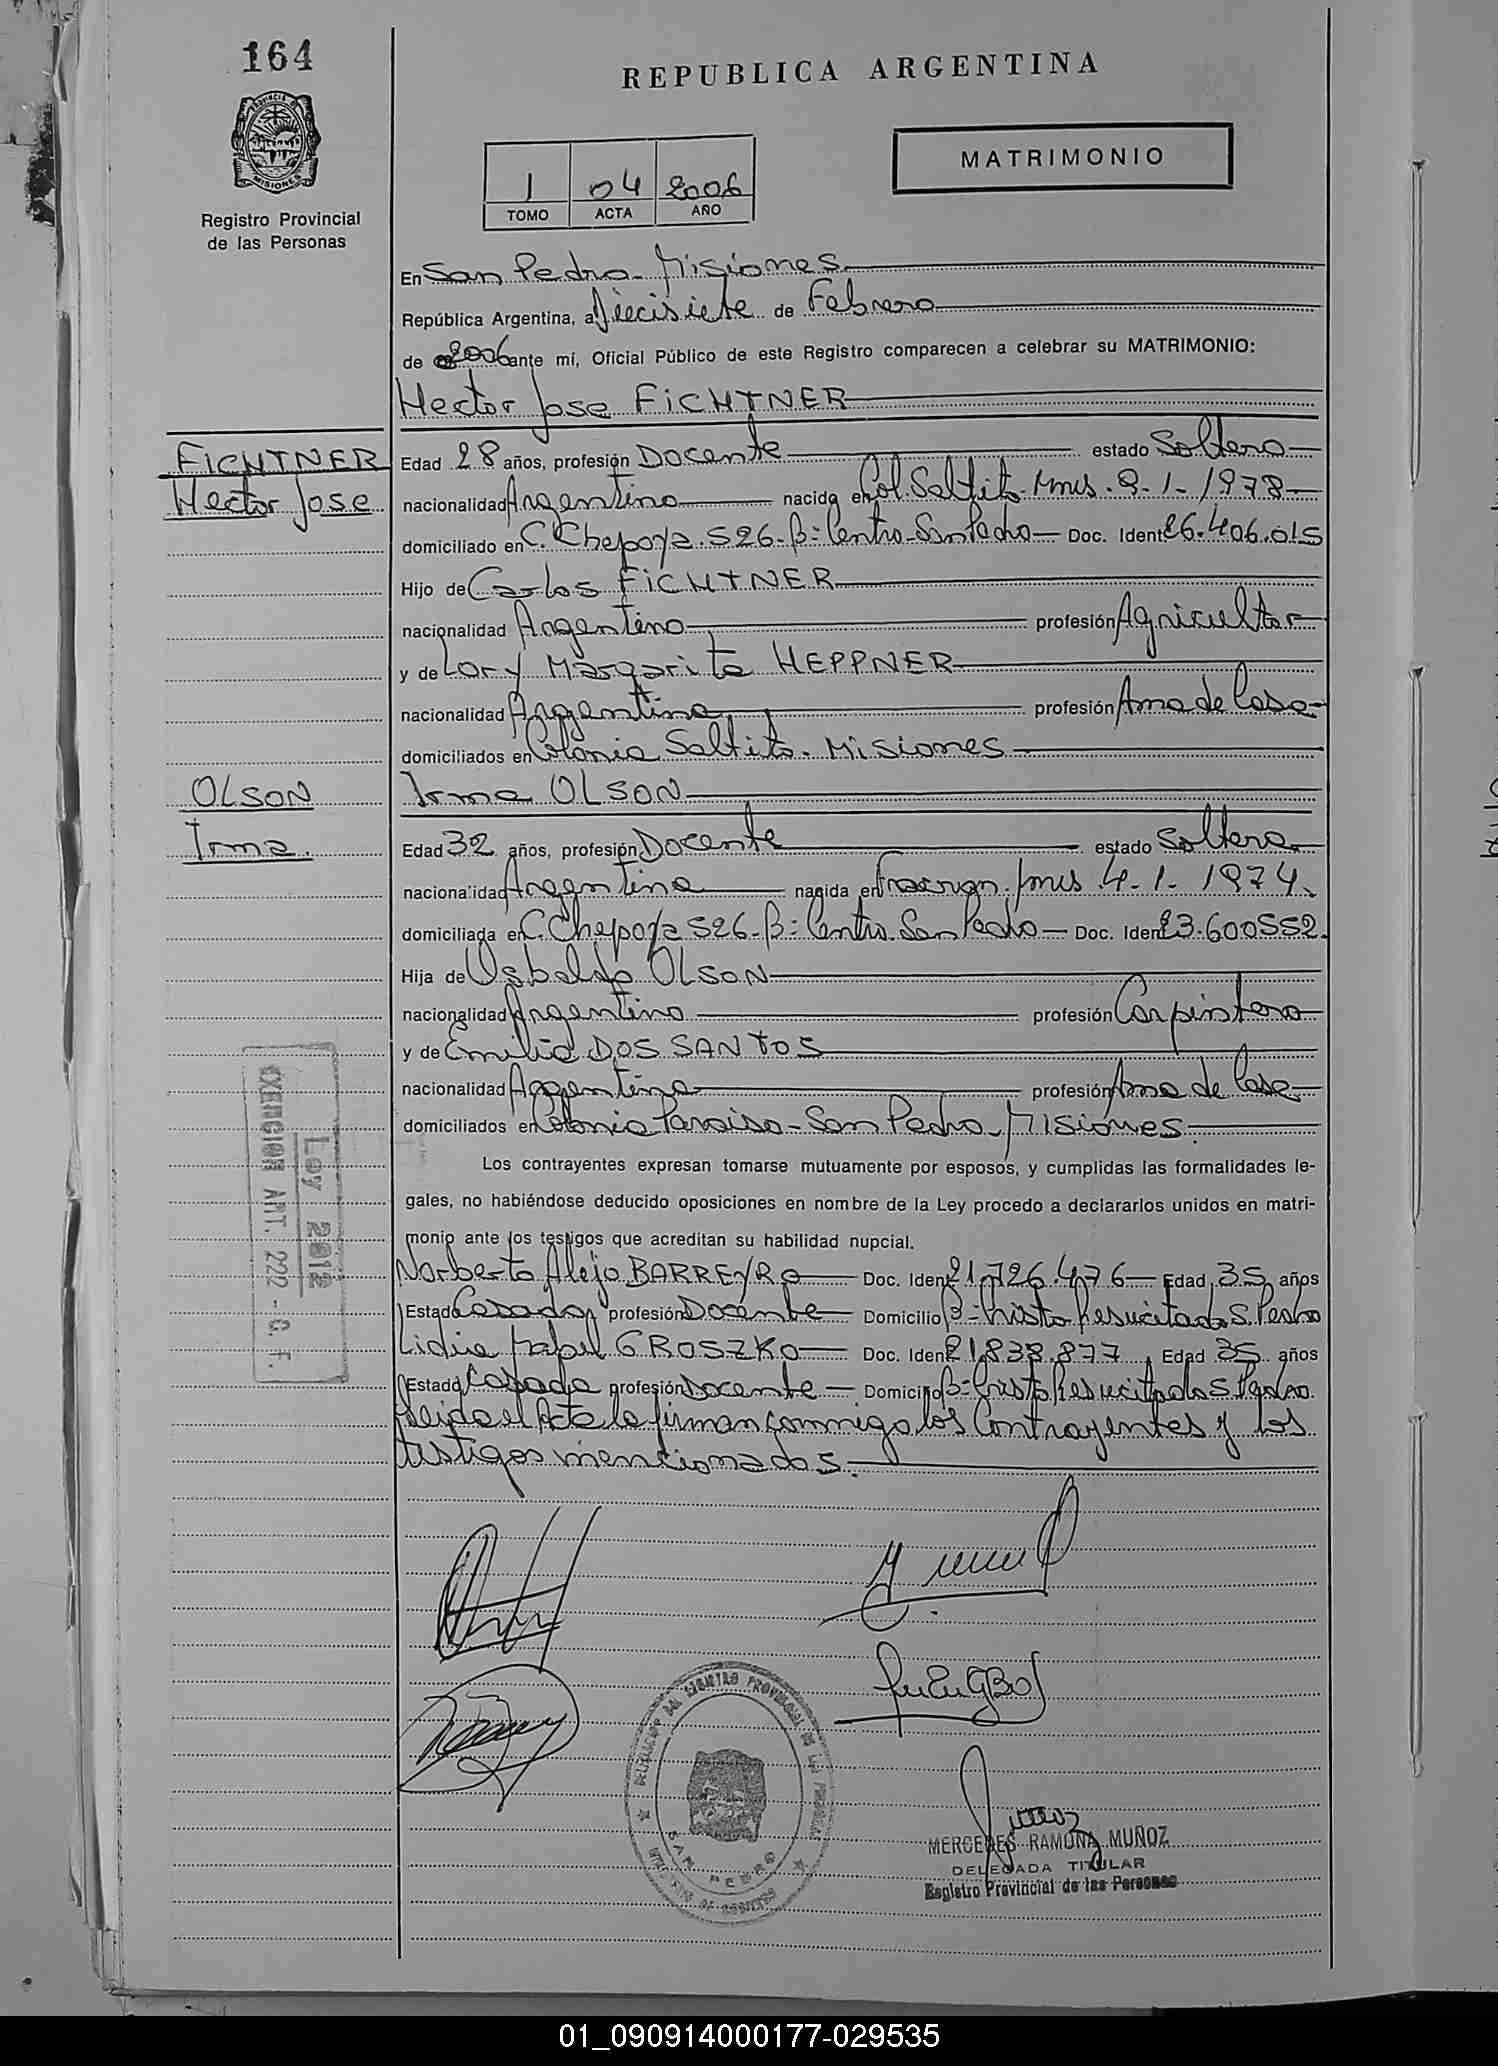 164
REPUBLICA ARGENTINA
PROVINCIA DE
MISIONES
MATRIMONIO
1 04 2006
TOMO ACTA AÑO
Registro Provincial
de las Personas
En San Pedro - Misiones
República Argentina, a Diecisiete de Febrero
de 2006 ante mí, Oficial Público de este Registro comparecen a celebrar su MATRIMONIO:
Hector Jose FICHTNER
FICHTNER
Hector Jose
Edad 28 años, profesión Docente estado Soltero
nacionalidad Argentino nacido en Col. Saltito - Mnes. 9-1-1978
domiciliado en C. Chepoya. 526 - B= Centro - San Pedro Doc. Ident 26.406.015
Hijo de Carlos FICHTNER
nacionalidad Argentino profesión Agricultor
y de Lory Margarita HEPPNER
nacionalidad Argentina profesión Ama de Casa
domiciliados en Colonia Saltito - Misiones
OLSON
Irma.
Irma OLSON
Edad 32 años, profesión Docente estado Soltera
nacionalidad Argentina nacida en Fracran. Mnes 4-1-1974.
domiciliada en C. Chepoya 526 - B= Centro. San Pedro Doc. Iden 23.600552.
Hija de Osbaldo OLSON
nacionalidad Argentino profesión Carpintero
y de Emilia DOS SANTOS
nacionalidad Argentina profesión Ama de Casa
domiciliados en Colonia Paraiso - San Pedro - Misiones.
Los contrayentes expresan tomarse mutuamente por esposos, y cumplidas las formalidades le-
gales, no habiéndose deducido oposiciones en nombre de la Ley procedo a declararlos unidos en matri-
monio ante los testigos que acreditan su habilidad nupcial.
Ley 2812
EXENCION ART. 222 - C. F.
Norberto Alejo BARREYRO Doc. Ident 21.726.476 Edad 35 años
Estado Casado profesión Docente Domicilio B= Cristo Resucitado S. Pedro
Lidia Isabel GROSZKO Doc. Iden 21.838.877 Edad 35 años
Estado Casada profesión Docente Domicilio B= Cristo Resucitado S. Pedro
Leida el Acta la firman conmigo los Contrayentes y los
testigos mencionados.
DELEGACION DEL REGISTRO PROVINCIAL DE LAS PERSONAS
SAN PEDRO
MERCEDES RAMONA MUÑOZ
DELEGADA TITULAR
Registro Provincial de las Personas
01_090914000177-029535